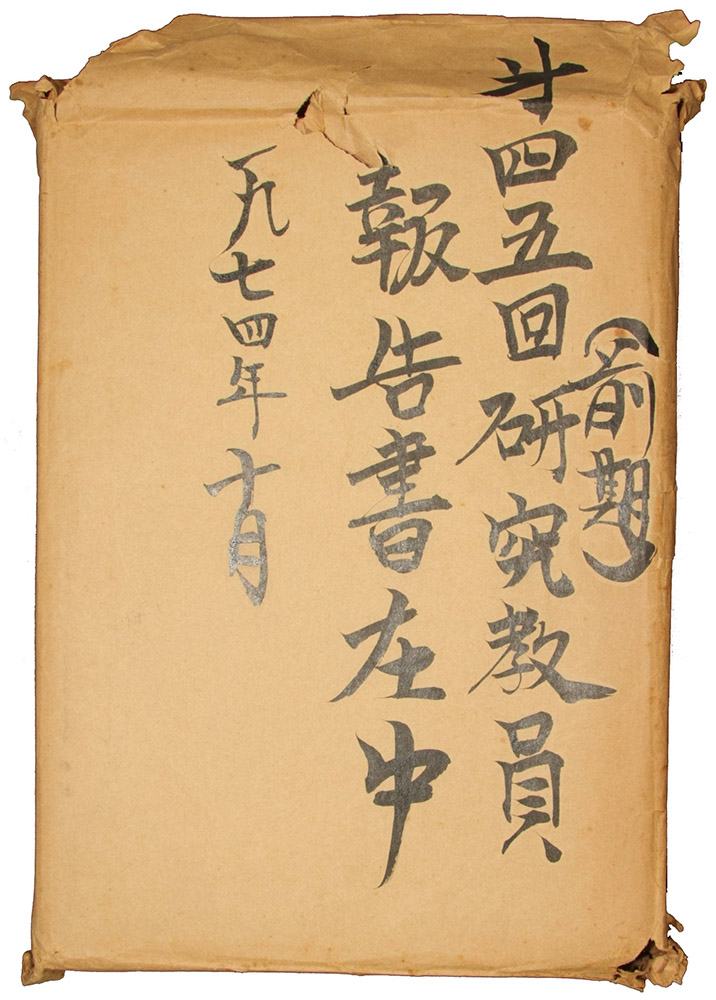 (前期)
斗四五回研究教員
報告書在中
一九七四年十月